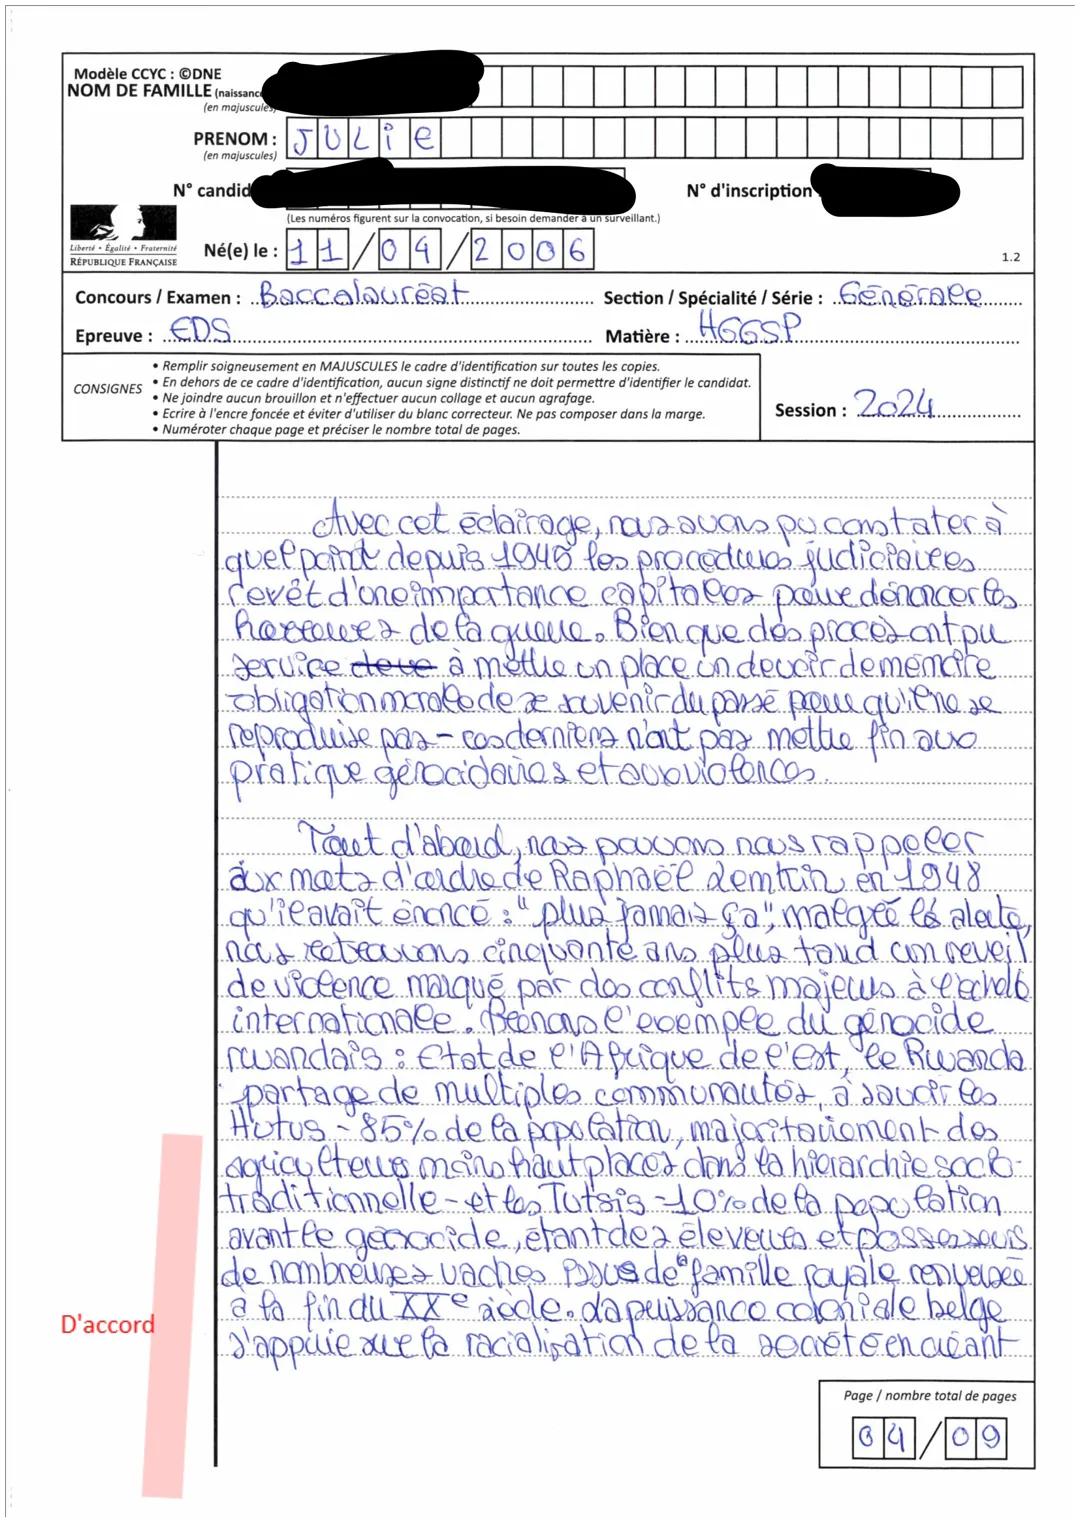 Modèle CCYC : ©DNE
NOM DE FAMILLE (naissance
(en majuscules)
PRENOM : JULiE
(en majuscules)
N° candid
N° d'inscription
(Les numéros figurent sur la convocation, si besoin demander à un surveillant.)
Liberté • Égalité • Fraternité
RÉPUBLIQUE FRANÇAISE
Né(e) le : 11/04/2006
1.2
Concours / Examen : Baccalauréat Section / Spécialité / Série : Générale
Epreuve : EDS Matière : HGGSP
CONSIGNES
• Remplir soigneusement en MAJUSCULES le cadre d'identification sur toutes les copies.
• En dehors de ce cadre d'identification, aucun signe distinctif ne doit permettre d'identifier le candidat.
• Ne joindre aucun brouillon et n'effectuer aucun collage et aucun agrafage.
• Ecrire à l'encre foncée et éviter d'utiliser du blanc correcteur. Ne pas composer dans la marge.
• Numéroter chaque page et préciser le nombre total de pages.
Session : 2024
Avec cet éclairage, nous avons pu constater à
quel point depuis 1945 les procédures judiciaires
revêt d'une importance capitales pour dénoncer les
horreures de la guerre. Bien que des procès ont pu
service à mettre en place un devoir de mémoire
obligation morale de se souvenir du passé pour qu'il ne se
reproduise pas - ces derniers n'ont pas mettre fin aux
pratique génocidaires et aux violences.
Tout d'abord, nous pouvons nous rappeler
aux mots d'ordre de Raphaël Lemkin en 1948
qu'il avait énoncé : "plus jamais ça", malgré les alerte,
nous retrouvons cinquante ans plus tard un reveil
de violence marqué par des conflits majeurs à l'echelle
internationale. Prenons l'exemple du génocide
rwandais : Etat de l'Afrique de l'Est, le Rwanda
partage de multiples communautés, à savoir les
Hutus - 85% de la population, majoritairement des
agriculteurs moins haut placés dans la hiérarchie socio-
traditionnelle - et les Tutsis - 10% de la population
avant le génocide, étant des éleveurs et possesseurs
de nombreuses vaches issus de famille royale renversée
à la fin du XXe siècle. La puissance coloniale belge
s'appuie sur la racialisation de la société en créant
D'accord
Page / nombre total de pages
04/09